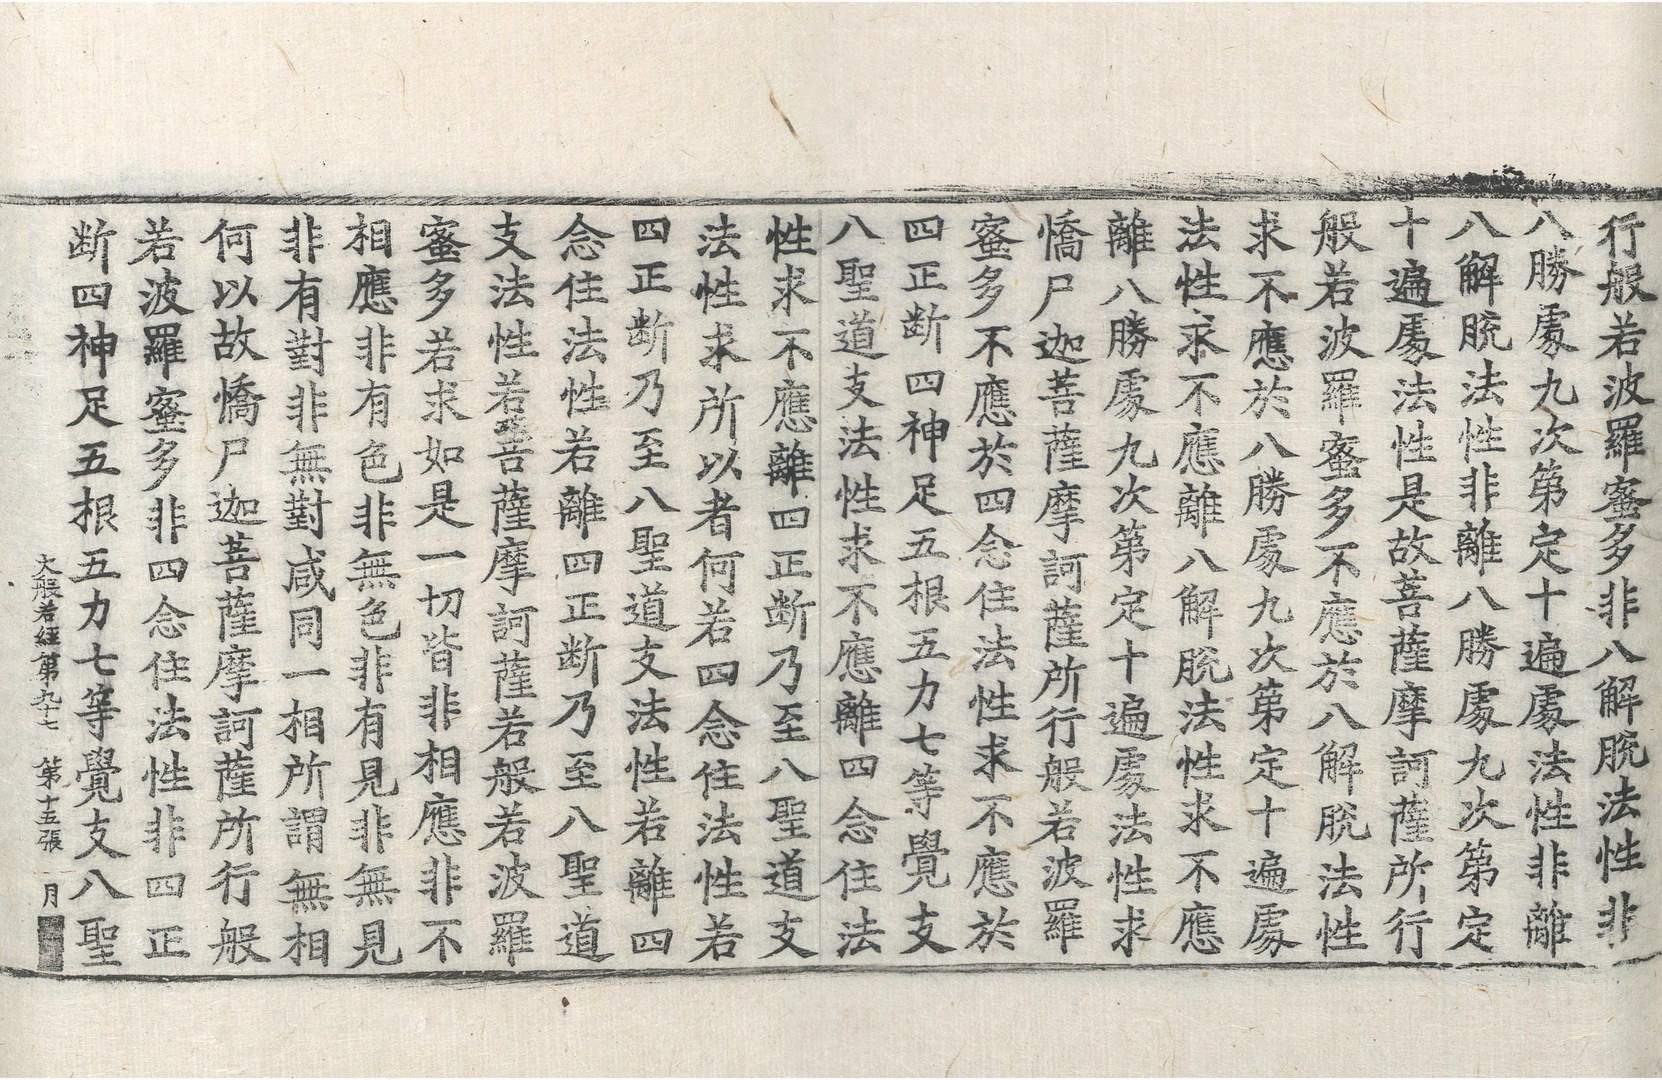 行般若波羅蜜多非八解脫法性非
八勝處九次第定十遍處法性非離
八解脫法性非離八勝處九次第定
十遍處法性是故菩薩摩訶薩所行
般若波羅蜜多不應於八解脫法性
求不應於八勝處九次第定十遍處
法性求不應離八解脫法性求不應
離八勝處九次第定十遍處法性求
憍尸迦菩薩摩訶薩所行般若波羅
蜜多不應於四念住法性求不應於
四正断四神足五根五力七等覺支
八聖道支法性求不應離四念住法
性求不應離四正断乃至八聖道支
法性求所以者何若四念住法性若
四正断乃至八聖道支法性若離四
念住法性若離四正断乃至八聖道
支法性若菩薩摩訶薩若般若波羅
蜜多若求如是一切皆非相應非不
相應非有色非無色非有見非無見
非有對非無對咸同一相所謂無相
何以故憍尸迦菩薩摩訶薩所行般
若波羅蜜多非四念住法性非四正
断四神足五根五力七等覺支八聖
大般若經第九十七 第十五張 月